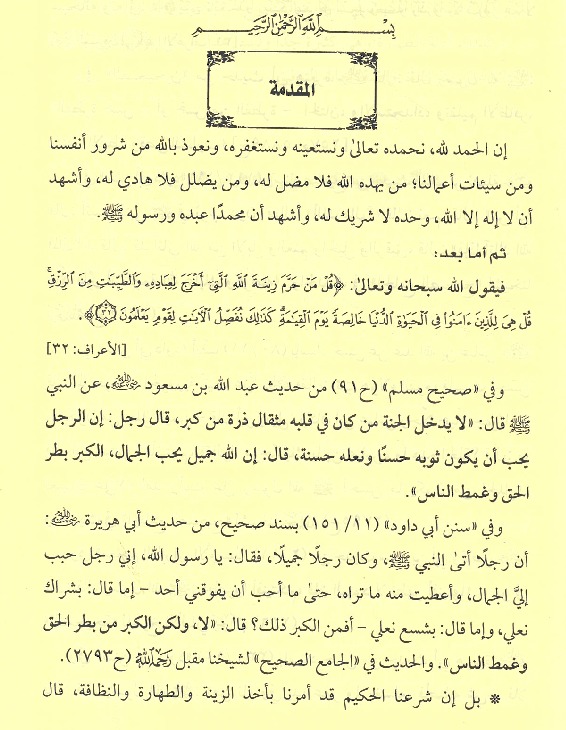 بسم الله الرحمن الرحيم
المقدمة
إن الحمد لله، نحمده تعالىٰ ونستعينه ونستغفره، ونعوذ بالله من شرور أنفسنا
ومن سيئات أعمالنا؛ من يهده الله فلا مضل له، ومن يضلل فلا هادي له، وأشهد
أن لا إله إلا الله، وحده لا شريك له، وأشهد أن محمدًا عبده ورسوله ﷺ.
ثم أما بعد:
فيقول الله سبحانه وتعالىٰ: ﴿قُلْ مَنْ حَرَّمَ زِينَةَ ٱللَّهِ ٱلَّتِىٓ أَخْرَجَ لِعِبَادِهِۦ وَٱلطَّيِّبَٰتِ مِنَ ٱلرِّزْقِ ۚ
قُلْ هِىَ لِلَّذِينَ ءَامَنُوا۟ فِى ٱلْحَيَوٰةِ ٱلدُّنْيَا خَالِصَةً يَوْمَ ٱلْقِيَٰمَةِ ۗ كَذَٰلِكَ نُفَصِّلُ ٱلْءَايَٰتِ لِقَوْمٍ يَعْلَمُونَ ٣٢﴾.
[الأعراف: ٣٢]
وفي «صحيح مسلم» (ح٩١) من حديث عبد الله بن مسعود رضي الله عنه، عن النبي
ﷺ قال: «لا يدخل الجنة من كان في قلبه مثقال ذرة من كبر، قال رجل: إن الرجل
يحب أن يكون ثوبه حسنًا ونعله حسنة، قال: إن الله جميل يحب الجمال، الكبر بطر
الحق وغمط الناس».
وفي «سنن أبي داود» (١٥١/١١) بسند صحيح، من حديث أبي هريرة رضي الله عنه:
أن رجلًا أتىٰ النبي ﷺ، وكان رجلًا جميلًا، فقال: يا رسول الله، إني رجل حبب
إليَّ الجمال، وأعطيت منه ما تراه، حتىٰ ما أحب أن يفوقني أحد – إما قال: بشراك
نعلي، وإما قال: بشسع نعلي – أفمن الكبر ذلك؟ قال: «لا، ولكن الكبر من بطر الحق
وغمط الناس». والحديث في «الجامع الصحيح» لشيخنا مقبل رحمه الله (ح٢٧٩٣).
* بل إن شرعنا الحكيم قد أمرنا بأخذ الزينة والطهارة والنظافة، قال